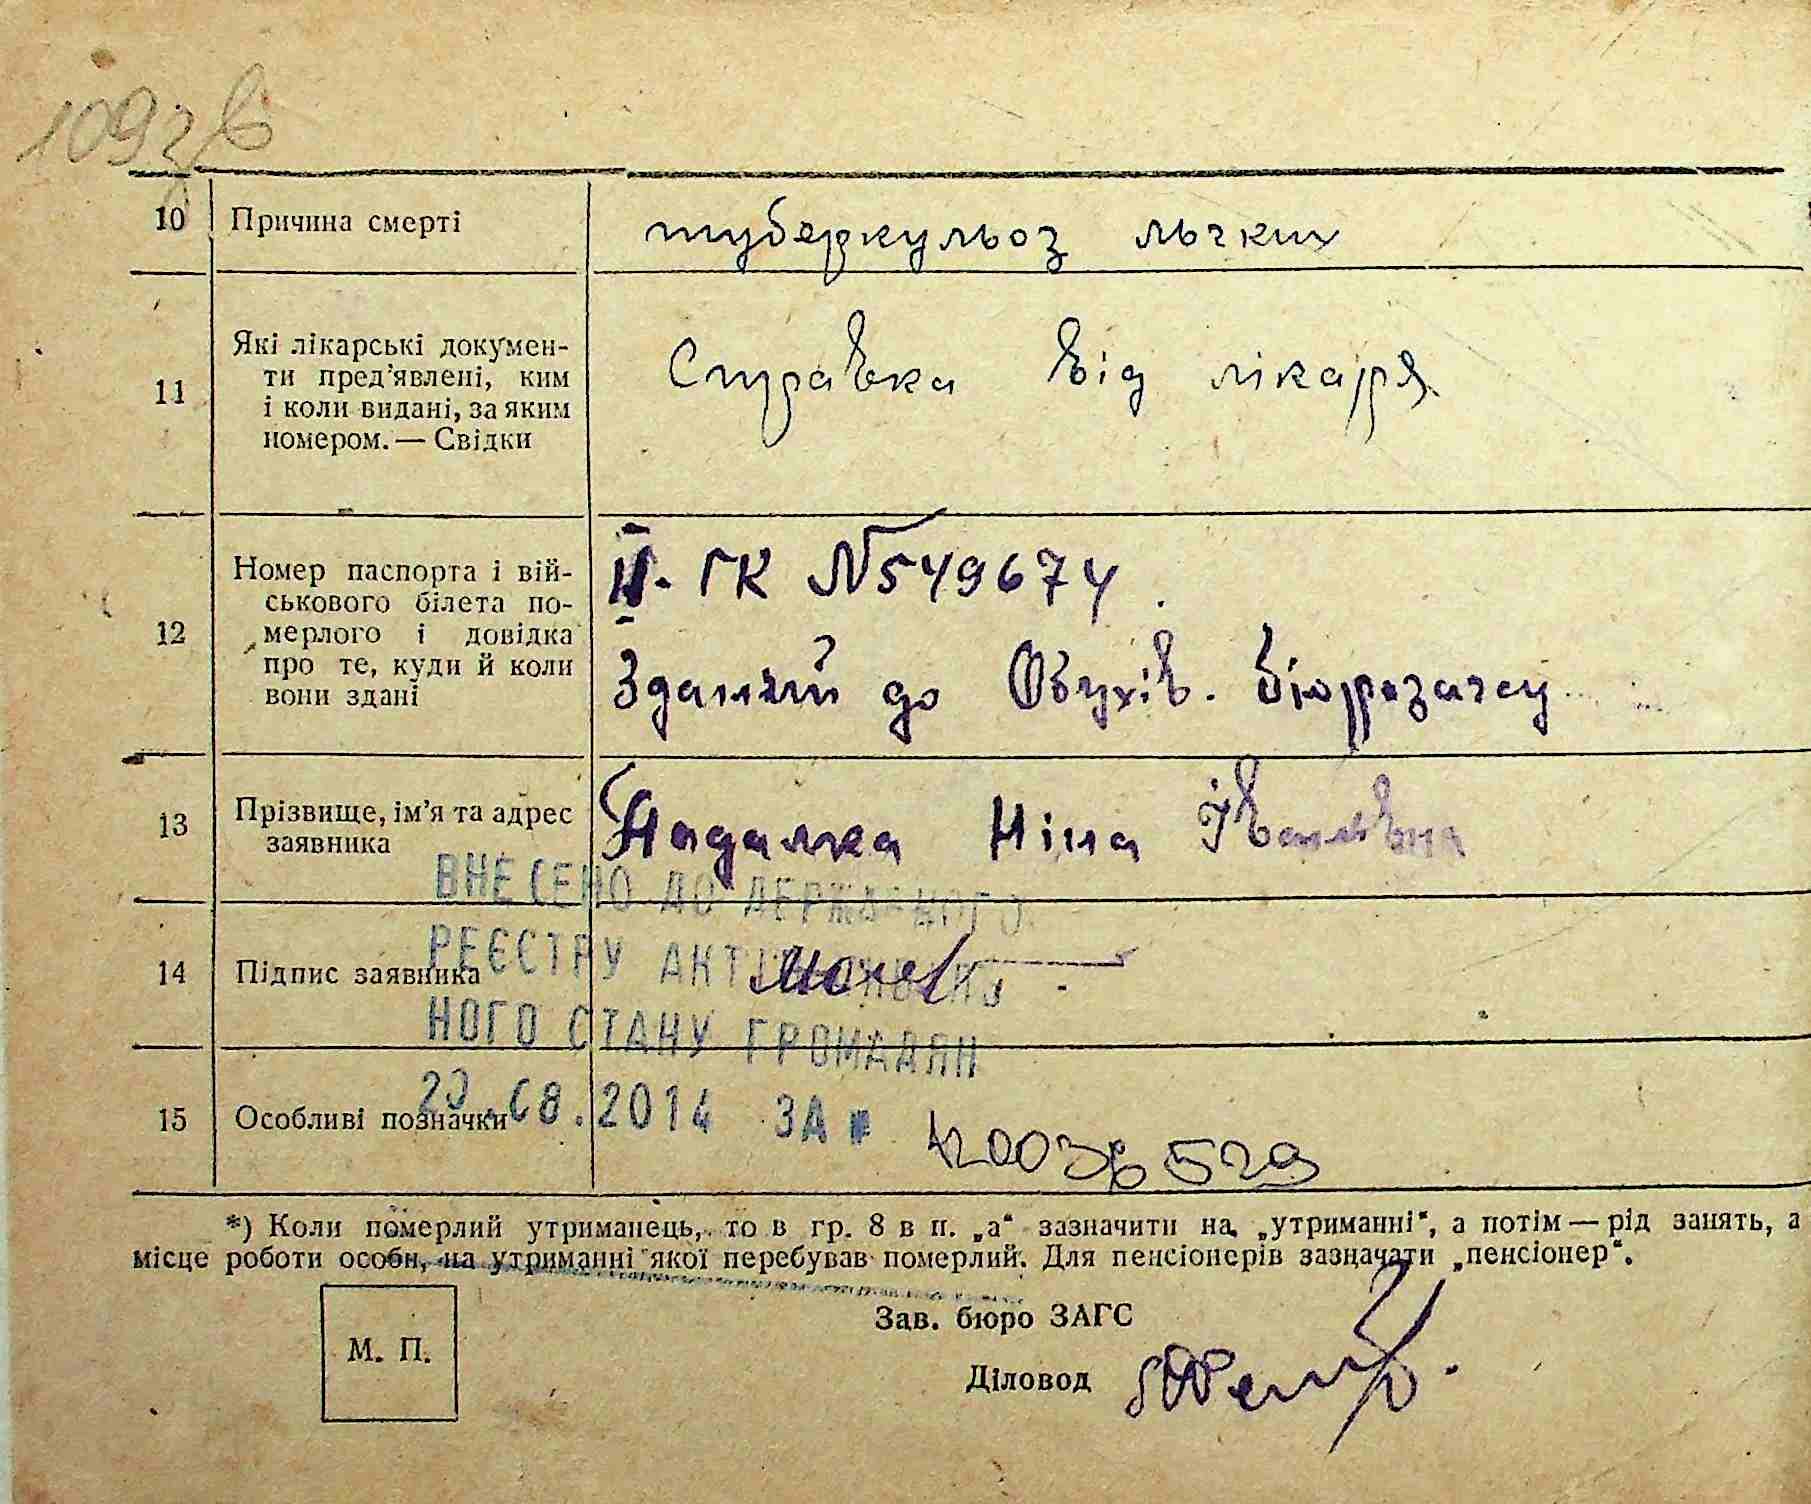 109зв
10 Причина смерті туберкульоз льгких
11 Які лікарські докумен-
ти пред’явлені, ким
і коли видані, за яким
номером. — Свідки
Справка від лікаря
12 Номер паспорта і вій-
ськового білета по-
мерлого і довідка
про те, куди й коли
вони здані
II - ГК №549674.
Зданий до Обухів. бюрозагсу
13 Прізвище, ім’я та адрес
заявника
Надалка Ніна Іванівна
ВНЕСЕНО ДО ДЕРЖАВНОГО
РЕЄСТРУ АКТІВ
14 Підпис заявника
НОГО СТАНУ ГРОМАДЯН
15 Особливі позначки
.08.2014 ЗА №
529
*) Коли померлий утриманець, то в гр. 8 в п. „а“ зазначити на „утриманні“, а потім — рід занять, а
місце роботи особи, на утриманні якої перебував померлий. Для пенсіонерів зазначати „пенсіонер“.
М. П.
Зав. бюро ЗАГС
Діловод